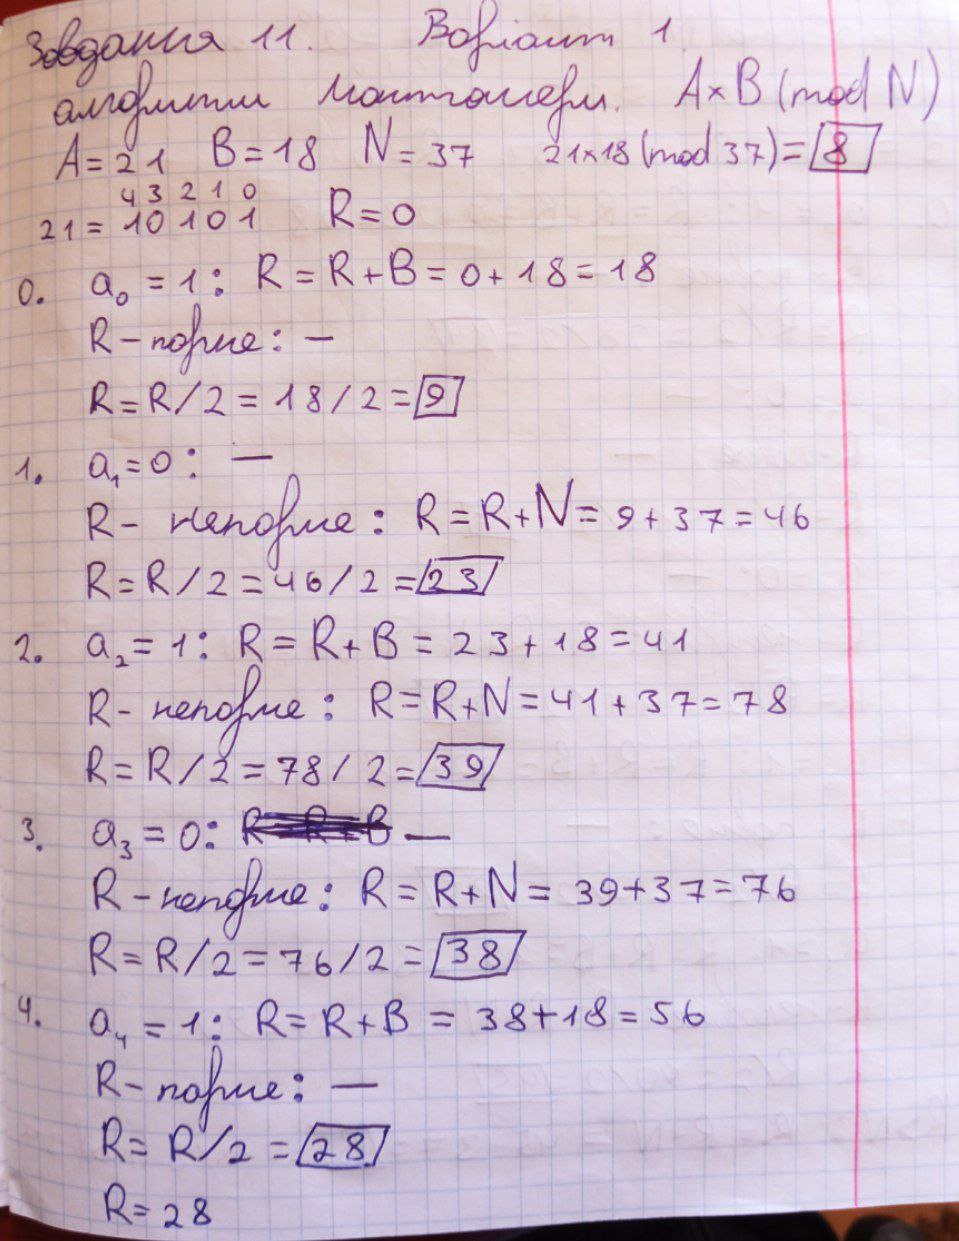 Завдання 11. Варіант 1.
алгоритм Монтгомері. A×B (mod N)
A=21 B=18 N=37 21×18 (mod 37)=8
4 3 2 1 0
21= 10101 R=0
0. a₀ = 1: R=R+B=0+18=18
R-парне: —
R=R/2=18/2=9
1. a₁=0: —
R- непарне: R=R+N=9+37=46
R=R/2=46/2=23
2. a₂=1: R=R+B=23+18=41
R- непарне: R=R+N=41+37=78
R=R/2=78/2=39
3. a₃=0: —
R-непарне: R=R+N=39+37=76
R=R/2=76/2=38
4. a₄=1: R=R+B=38+18=56
R-парне: —
R=R/2=28
R=28